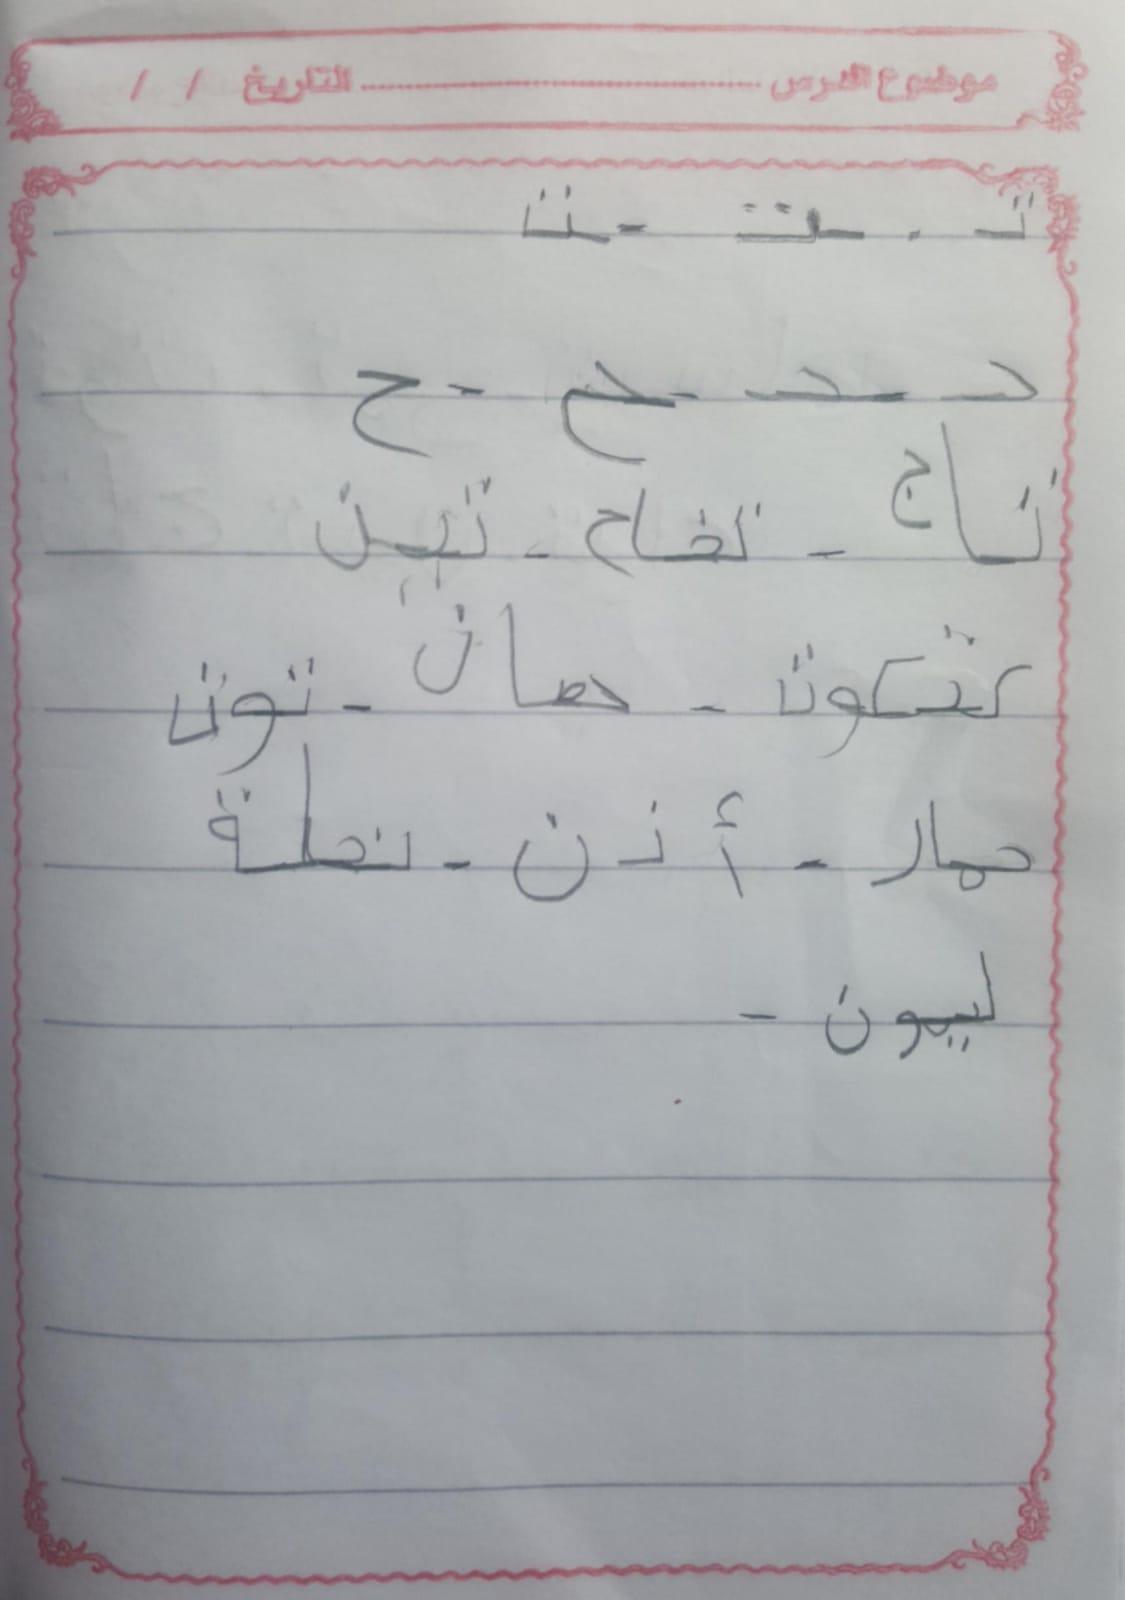 موضوع الدرس ........................ التاريخ / /
تـ - ـتـ - ـت
حـ - ـحـ - ـح - ح
تاج - تفاح - تين
كتكوت - حصان - توت
حمار - أذن - نحلة
ليمون -